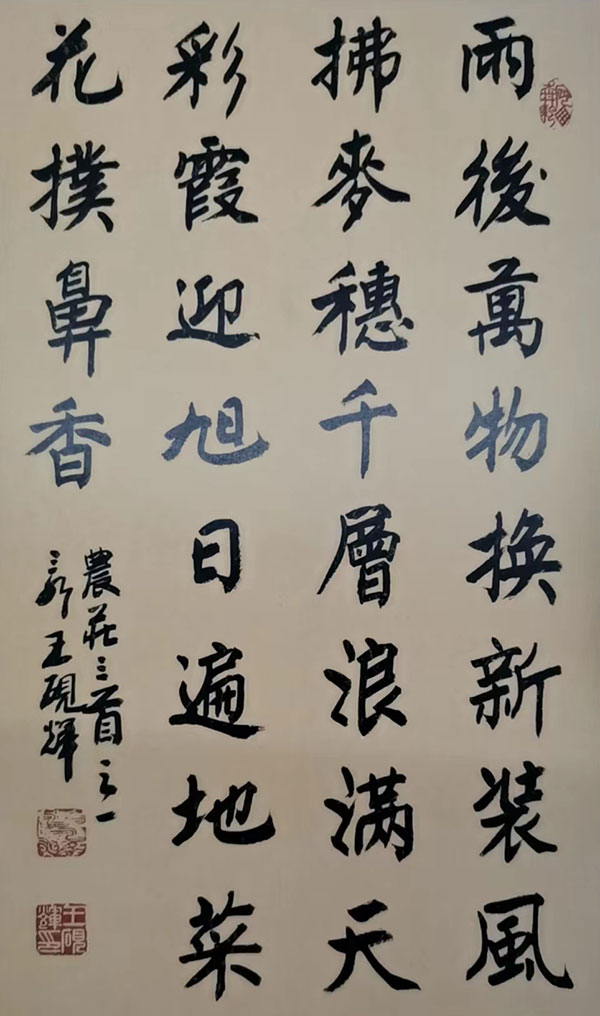 雨後萬物換新装風
拂麥穗千層浪滿天
彩霞迎旭日遍地菜
花撲鼻香
農莊三首之一
王硯輝
王硯輝印